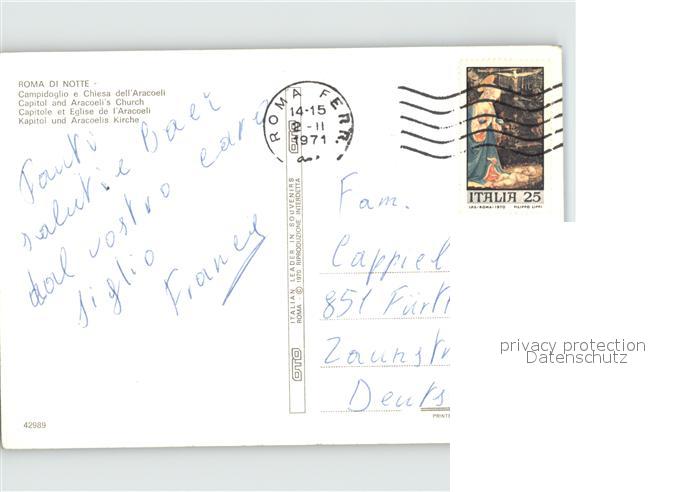 ROMA DI NOTTE -
Campidoglio e Chiesa dell'Aracoeli
Capitol and Aracoeli's Church
Capitole et Eglise de l'Aracoeli
Kapitol und Aracoelis Kirche
Tanti
saluti e Baci
dal vostro caro
figlio
Franco
42989
ITALIAN LEADER IN SOUVENIRS
ROMA - © 1970 RIPRODUZIONE INTERDETTA
OTO
OTO
ROMA FERR.
14-15
-II
1971
ITALIA 25
I.P.S.-ROMA-1970 FILIPPO LIPPI
Fam.
Cappiel
851 Fürt
Zaunstr
Deuts
PRINTE
privacy protection
Datenschutz